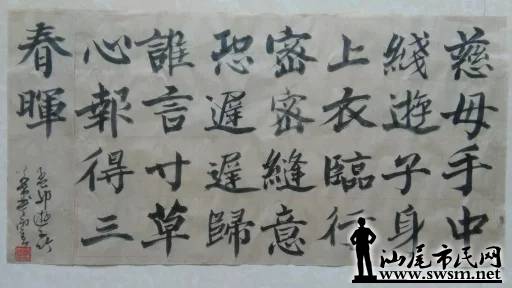 慈母手中
綫遊子身
上衣臨行
密密縫意
恐遲遲歸
誰言寸草
心報得三
春暉
汕尾市民网
www.swsm.net